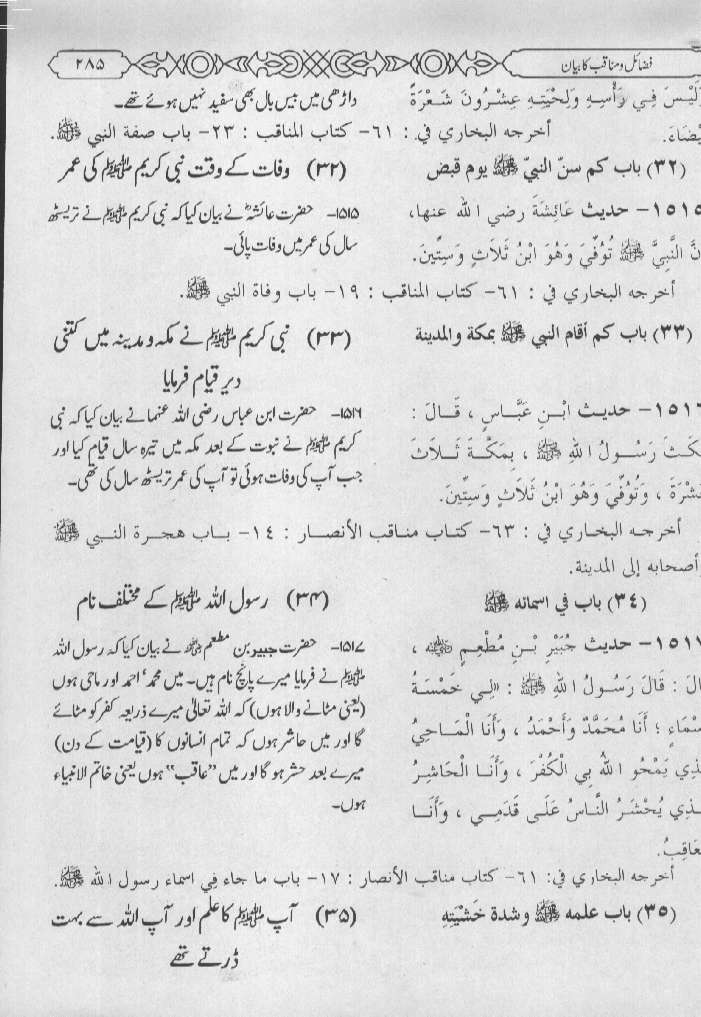 فضائل ومناقب کا بیان ۲۸۵
وَلَيْسَ فِي رَأْسِهِ وَلِحْيَتِهِ عِشْرُونَ شَعْرَةً
بَيْضَاءَ.
داڑھی میں بیس بال بھی سفید نہیں ہوئے تھے۔
أخرجه البخاري في : ٦١- كتاب المناقب : ٢٣- باب صفة النبي ﷺ.
(٣٢) باب كم سنّ النبيّ ﷺ يوم قبض
(۳۲) وفات کے وقت نبی کریم ﷺ کی عمر
١٥١٥- حديث عَائِشَةَ رضي الله عنها،
نَّ النَّبِيَّ ﷺ تُوُفِّيَ وَهُوَ ابْنُ ثَلَاثٍ وَسِتِّينَ.
۱۵۱۵- حضرت عائشہؓ نے بیان کیا کہ نبی کریم ﷺ نے تریسٹھ
سال کی عمر میں وفات پائی۔
أخرجه البخاري في : ٦١- كتاب المناقب : ١٩- باب وفاة النبي ﷺ.
(٣٣) باب كم أقام النبي ﷺ بمكة والمدينة
(۳۳) نبی کریم ﷺ نے مکہ و مدینہ میں کتنی
دیر قیام فرمایا
١٥١٦- حديث ابْنِ عَبَّاسٍ ، قَالَ :
مَكَثَ رَسُولُ اللهِ ﷺ ، بِمَكَّةَ ثَلَاثَ
عَشْرَةَ ، وَتُوُفِّيَ وَهُوَ ابْنُ ثَلَاثٍ وَسِتِّينَ.
۱۵۱۶- حضرت ابن عباس رضی اللہ عنہما نے بیان کیا کہ نبی
کریم ﷺ نے نبوت کے بعد مکہ میں تیرہ سال قیام کیا اور
جب آپ کی وفات ہوئی تو آپ کی عمر تریسٹھ سال کی تھی۔
أخرجه البخاري في : ٦٣- كتاب مناقب الأنصار : ١٤- باب هجرة النبي ﷺ
وأصحابه إلى المدينة.
(٣٤) باب في اسمائه ﷺ
(۳۴) رسول اللہ ﷺ کے مختلف نام
١٥١٧- حديث جُبَيْرِ بْنِ مُطْعِمٍ ؓ ،
قَالَ : قَالَ رَسُولُ اللهِ ﷺ : «لِي خَمْسَةُ
أَسْمَاءٍ ؛ أَنَا مُحَمَّدٌ وَأَحْمَدُ ، وَأَنَا الْمَاحِيُّ
الَّذِي يَمْحُو اللهُ بِي الْكُفْرَ ، وَأَنَا الْحَاشِرُ
الَّذِي يُحْشَرُ النَّاسُ عَلَى قَدَمِي ، وَأَنَا
الْعَاقِبُ.
۱۵۱۷- حضرت جبیر بن مطعم ؓ نے بیان کیا کہ رسول اللہ
ﷺ نے فرمایا میرے پانچ نام ہیں۔ میں محمد' احمد اور ماحی ہوں
(یعنی مٹانے والا ہوں) کہ اللہ تعالیٰ میرے ذریعہ کفر کو مٹائے
گا اور میں حاشر ہوں کہ تمام انسانوں کا (قیامت کے دن)
میرے بعد حشر ہو گا اور میں "عاقب" ہوں یعنی خاتم الانبیاء
ہوں۔
أخرجه البخاري في: ٦١- كتاب مناقب الأنصار : ١٧- باب ما جاء في اسماء رسول الله ﷺ.
(٣٥) باب علمه ﷺ وشدة خَشْيَتِهِ
(۳۵) آپ ﷺ کا علم اور آپ اللہ سے بہت
ڈرتے تھے